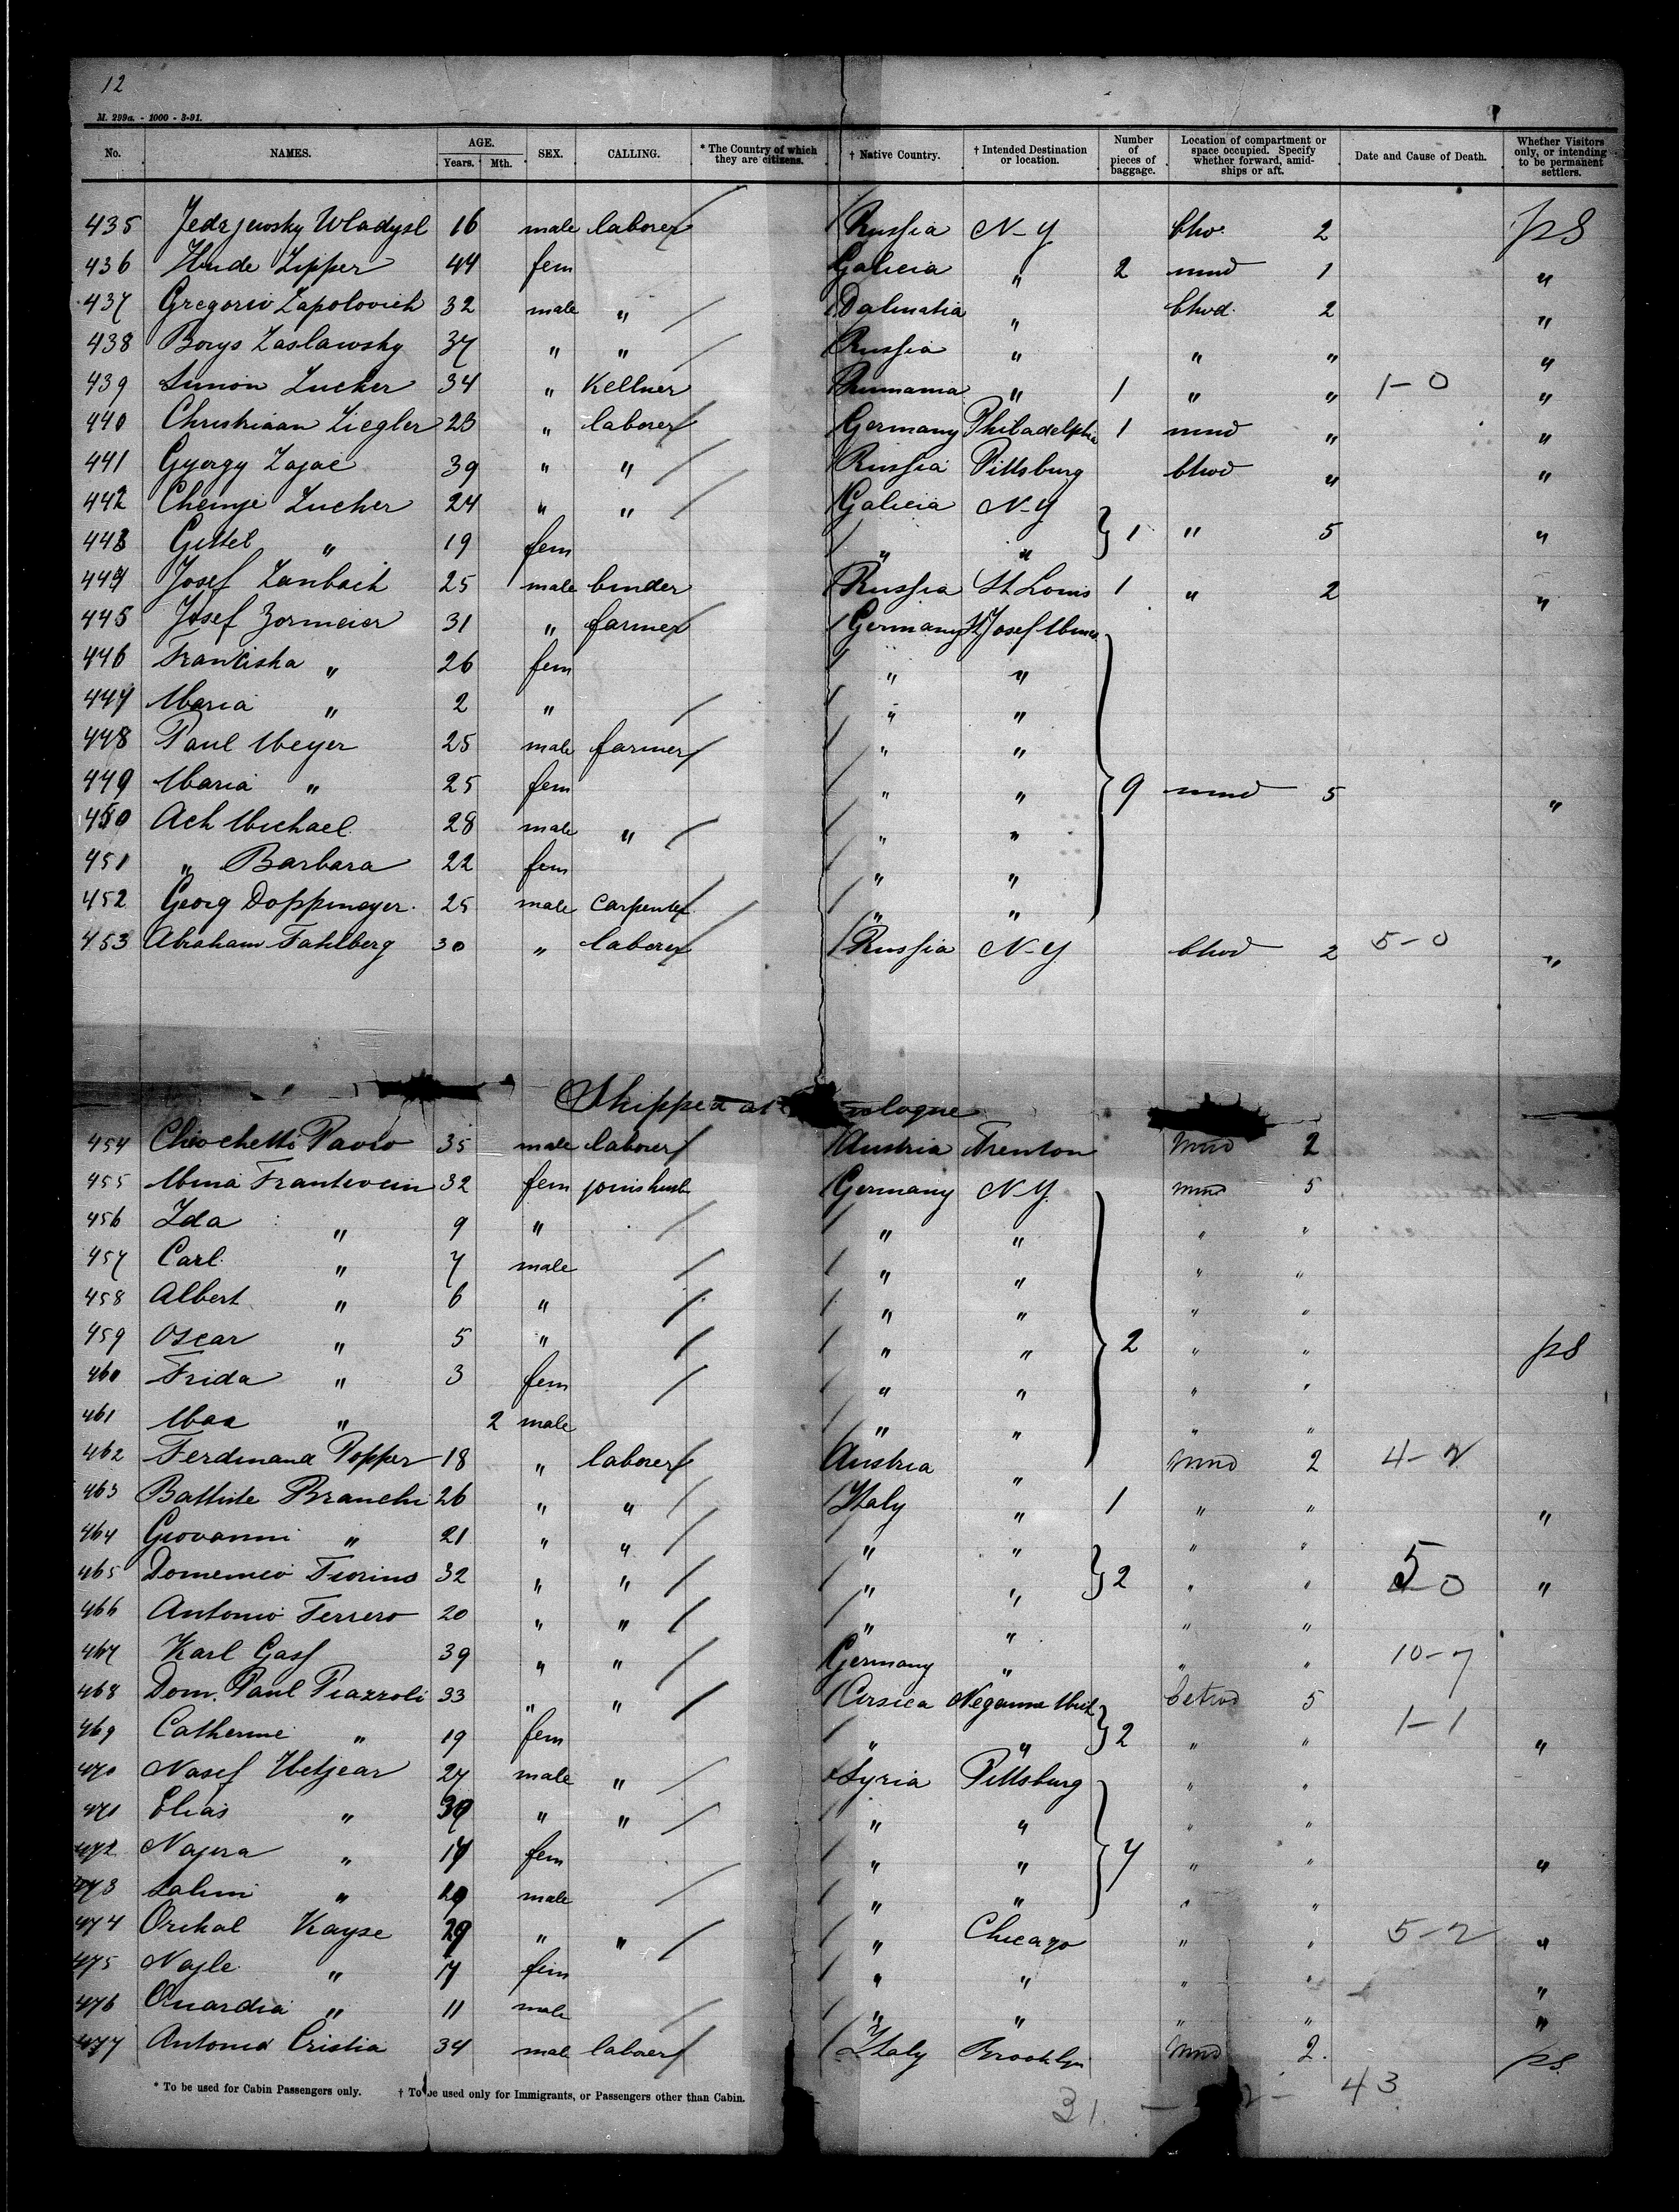 12
M. 299a. - 1000 - 3-91.
No. NAMES. AGE. Years. Mth. SEX. CALLING. * The Country of which they are citizens. † Native Country. † Intended Destination or location. Number of pieces of baggage. Location of compartment or space occupied. Specify whether forward, amidships or aft. Date and Cause of Death. Whether Visitors only, or intending to be permanent settlers.
435 Wladysl 16 male laborer Russia N-Y 2 ps
436 Hude Zipper 44 fem Galicia " 2 mmd 1 "
437 Gregorio Zapolovich 32 male " Dalmatia " btwd. 2 "
438 Borys Zaslawsky 37 " " Russia " " " "
439 Simon Zucker 34 " Kellner Rumania " 1 " " 1-0 "
440 Christiaan Ziegler 23 " laborer Germany Philadelphia 1 mmd " "
441 Gyorgy Zajac 39 " " Russia Pittsburg btwd " "
442 Chemje Zucher 24 " " Galicia N-Y
443 Gittel " 19 fem " " } 1 " 5 "
444 Josef Zanbach 25 male binder Russia St Louis 1 " 2 "
445 Josef Zormeier 31 " farmer Germany St Josef Minn.
446 Franciska " 26 fem " "
447 Maria " 2 " " "
448 Paul Meyer 25 male farmer " "
449 Maria " 25 fem " " } 9 mmd 5 "
450 Ach Michael 28 male " " "
451 " Barbara 22 fem " "
452 Georg Doppmeyer 25 male carpenter " "
453 Abraham Fahlberg 30 " laborer Russia N-Y btwd 2 5-0 "
Shipped at ologne
454 Chiochetti Paolo 35 male laborer Austria Trenton mmd 2
455 Mina Frantevein 32 fem joins husb Germany N-Y. mmd 5
456 Ida " 9 " " " " "
457 Carl " 7 male " " " "
458 Albert " 6 " " " " "
459 Oscar " 5 " " " } 2 " " ps
460 Frida " 3 fem " " " "
461 Max " 2 male " " " "
462 Ferdinand Popper 18 " laborer Austria " mmd 2 4-2
463 Battiste Branchi 26 " " Italy " 1 " " "
464 Giovanni " 21 " " " " " "
465 Domenico Fiorino 32 " " " " } 2 " " 5-0 "
466 Antonio Ferrero 20 " " " " " "
467 Karl Gass 39 " " Germany " " " 10-7
468 Dom. Paul Piazzoli 33 " " Corsica Negaunee Mich 5
469 Catherine " 19 fem " " } 2 " " 1-1 "
470 Nasef Hetjear 27 male " Syria Pittsburg " "
471 Elias " 30 " " " " " "
472 Najera " 17 fem " " } 4 " " "
473 Salim " 20 male " " " "
474 Orikal Kayse 29 " " " Chicago " " 5-2 "
475 Najle " 17 fem " " " " "
476 Quardia " 11 male " " " " "
477 Antonio Cristia 34 male laborer Italy Brooklyn mmd 2. ps.
* To be used for Cabin Passengers only. † To be used only for Immigrants, or Passengers other than Cabin.
31. — 2 — 43